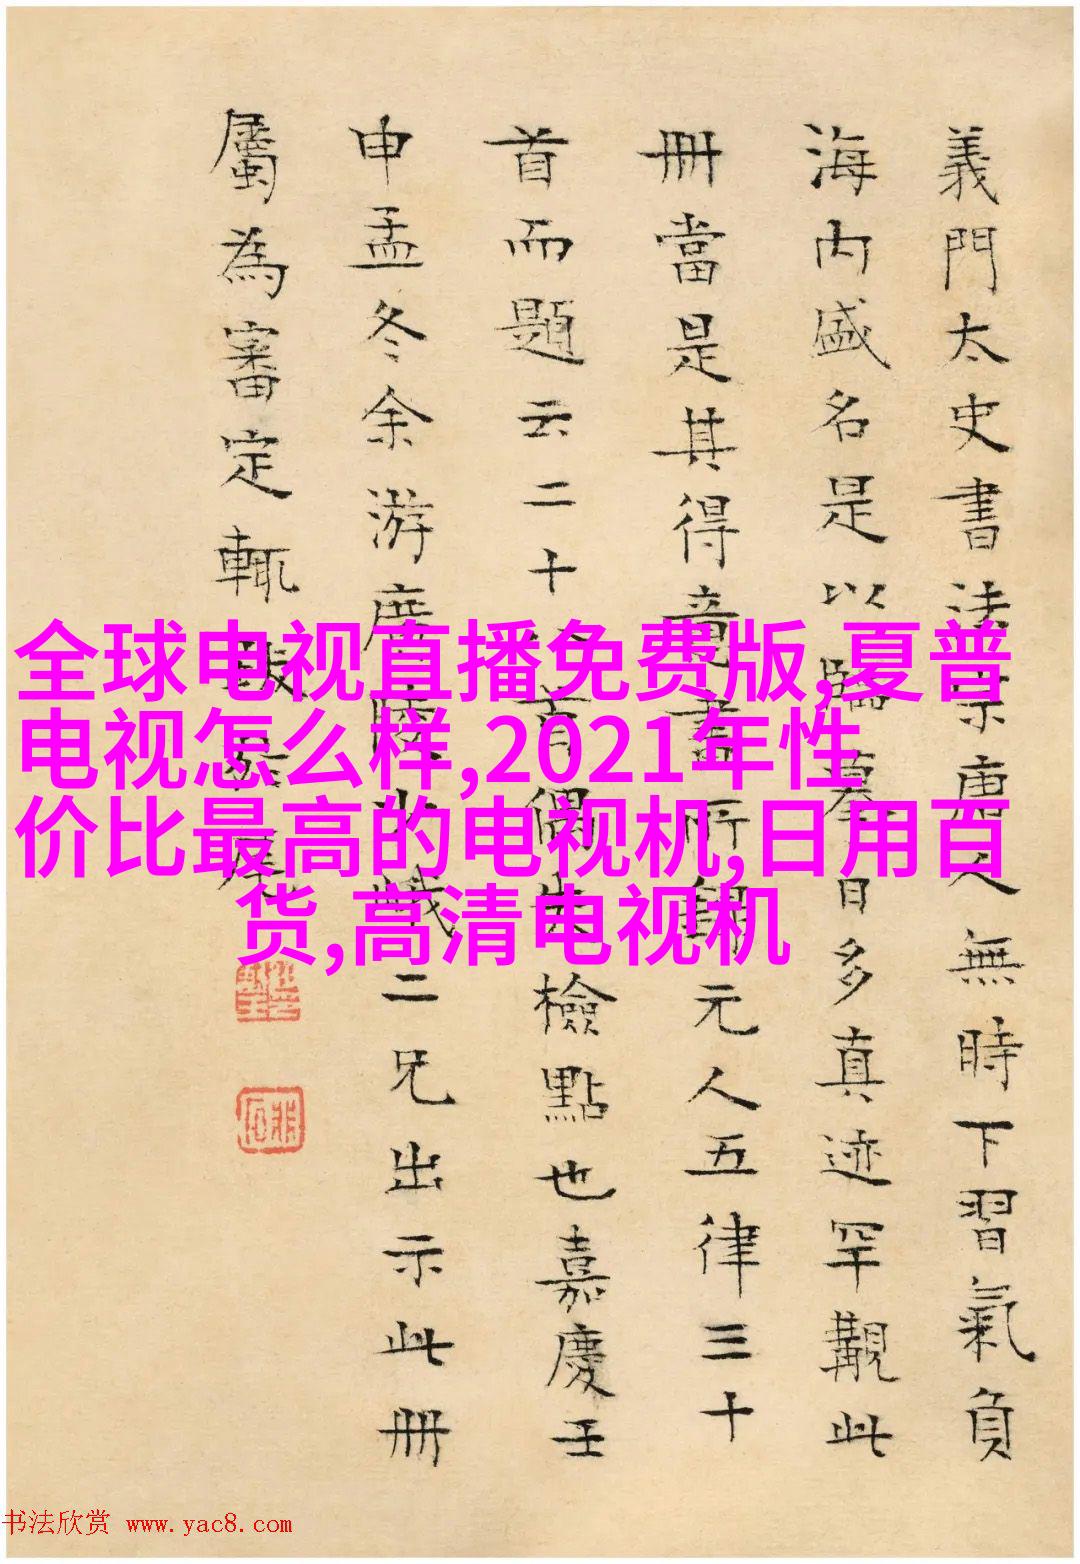 義門太史書法宗唐人無時下習氣負
海内盛名是以臨摹日多真迹罕覯此
冊當是其得意書所錄元人五律三十
首而題云二十首偶失檢點也嘉慶壬
申孟冬余游廣陵少峨二兄出示此冊
屬為審定輒跋於尾
全球电视直播免费版,夏普
电视怎么样,2021年性
价比最高的电视机,日用百
货,高清电视机
书法欣赏 www.yac8.com